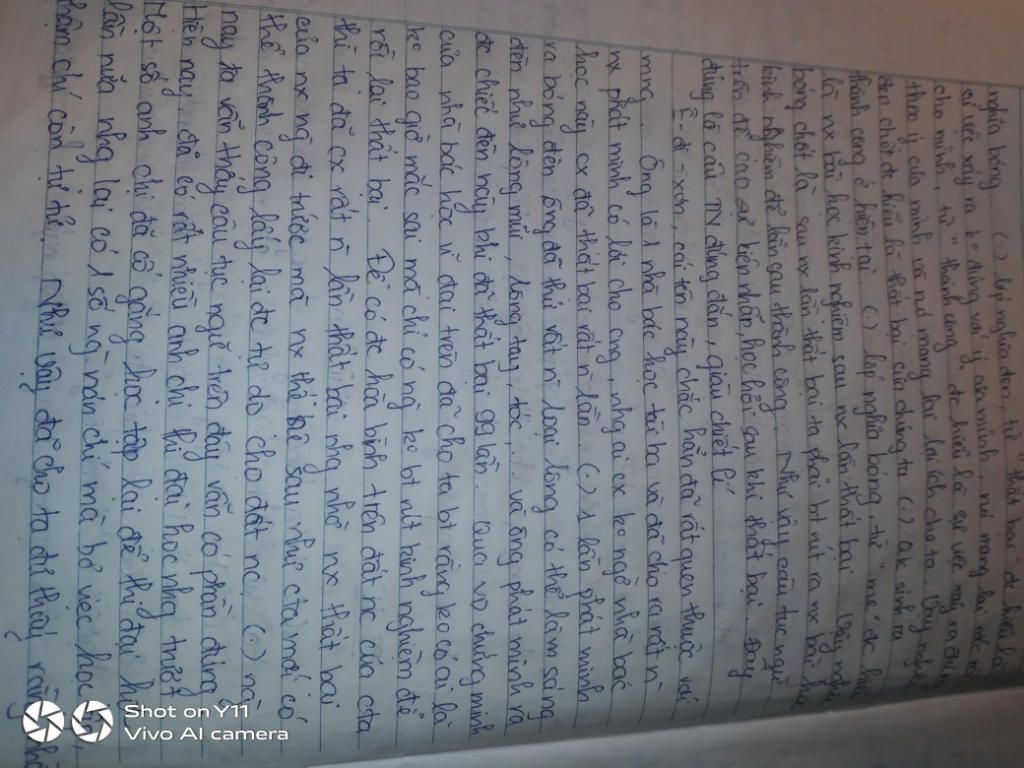 nghĩa bóng. (.) lớp nghĩa đen, từ " thất bại" đc hiểu là
sự vc xảy ra ko đúng vs ý của mình, nó mang lại
cho mình, từ " thành công" đc hiểu là sự vc xảy ra đúng
theo ý của mình và nó mang lại lợi ích cho ta. Vậy nghĩa
đen chỉ đc hiểu là thất bại của chúng ta (.) qk sinh ra
thành công ở hiện tại. (.) lớp nghĩa bóng, từ " mẹ" đc hiểu
là nx bài học kinh nghiệm sau nx lần thất bại. Vậy nghĩa
bóng chốt là sau nx lần thất bại ta phải bt rút ra nx bài học
kinh nghiệm để lần sau thành công. Như vậy câu tục ngữ
trên đề cao sự kiên nhẫn, học hỏi sau khi thất bại. Đây
đúng là câu TN đúng đắn, giàu chiết lí.
Ê-đi-xơn, cái tên này chắc hẳn đã rất quen thuộc với
mng. Ông là 1 nhà bác học tài ba và đã cho ra rất n`
nx phát minh có lợi cho ng, nhg ai cx ko ngờ nhà bác
học này cx đã thất bại rất n` lần. (.) 1 lần phát minh
ra bóng đèn ông đã thử rất n` loại lông có thể làm sáng
đèn như lông mũi, lông tay, tóc,... và ông phát minh ra
đc chiếc đèn này khi đã thất bại 99 lần. Qua vd chứng minh
của nhà bác học vĩ đại trên đã cho ta bt rằng ko có ai là
ko bao giờ mắc sai mà chỉ có ng ko bt rút kinh nghiệm để
rồi lại thất bại. Để có đc hòa bình trên đất nc của cta
thì ta đã cx rất n` lần thất bại nhg nhờ nx thất bại
của nx ng đi trước mà nx thế hệ sau như cta mới có
thể thành công lấy lại đc tự do cho đất nc. (.) n
nay ta vẫn thấy câu tục ngữ trên đây vẫn có phần đúng
Hiện nay, đã có rất nhiều anh chị thi đại học nhg trượt
Một số anh chị đã cố gắng học tập lại để thi đại học
lần nữa nhg lại có 1 số ng nản chí mà bỏ việc học
thậm chí còn tự tử. Như vậy đã cho ta dễ thấy rằng
Shot on Y11
Vivo AI camera